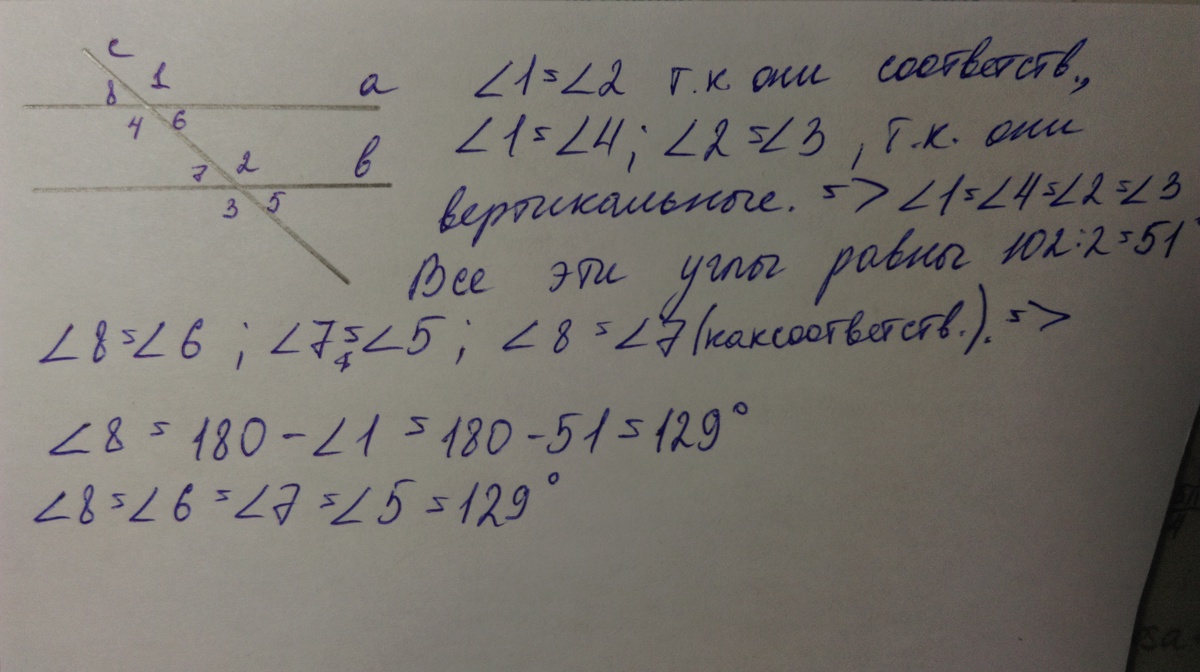 c
8 1 a
4 6
7 2 в
3 5
∠1 = ∠2 т.к они соответств.,
∠1 = ∠4; ∠2 = ∠3, т.к. они
вертикальные. => ∠1=∠4=∠2=∠3
Все эти углы равны 102:2=51°
∠8 = ∠6 ; ∠7 = ∠5 ; ∠8 = ∠7 (как соответств.). =>
∠8 = 180 - ∠1 = 180 - 51 = 129°
∠8 = ∠6 = ∠7 = ∠5 = 129°